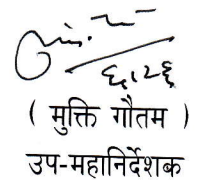 ( मुक्ति गौतम )
उप-महानिर्देशक